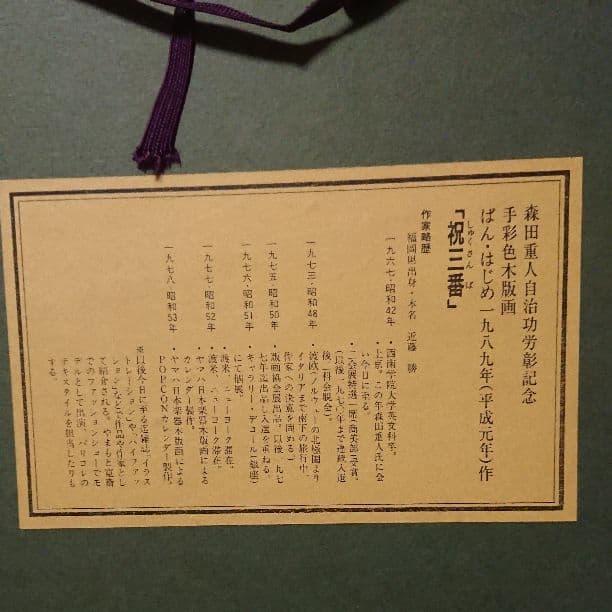 森田重人自治功労彰記念
手彩色木版画
ばん・はじめ一九八九年(平成元年)作
「祝三番」
しゅくさんば
作家略歴
福岡県出身・本名 近藤 勝
一九六七・昭和42年 ・西南学院大学英文科卒。
上京。この年森田重人氏に会
い今日に至る。
・二会展特選一席(商美部)受賞、
(以後一九七〇年まで連続入選
後二科会観会)。
一九七三・昭和48年 ・渡欧(ノルウェーの北極圏より
イタリアまで南下の旅行中、
作家への決意を固める)。
一九七五・昭和50年 ・版画協会展出品。以後一九七
七年迄出品し入選を重ねる。
一九七六・昭和51年 ・ギャラリー・デコール(銀座)
にて個展。
・渡米、ニューヨーク滞在。
一九七七・昭和52年 ・渡米、ニューヨーク滞在。
・ヤマハ日本楽器木版画による
カレンダー製作。
一九七八・昭和53年 ・ヤマハ日本楽器木版画による
POPCONカレンダー製作。
※以後今日に至る迄雑誌「イラス
トレーション」や、「ハイファッ
ション」などで作品や作家とし
て紹介される。やまもと寛斎
でのファッションショーでモ
デルとして出演、パリコレの
テキスタイルを担当したりも
する。